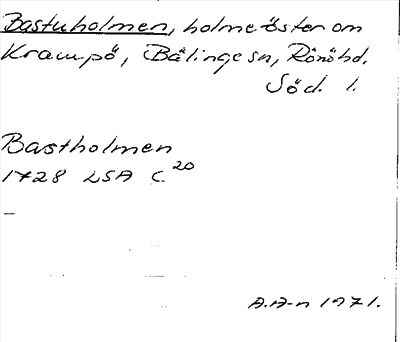 Bastuholmen, holme öster om
Krampö, Bälinge sn, Rönöhd.
Söd. l.
Bastholmen
1728 LSA C 20
A.A-n 1971.